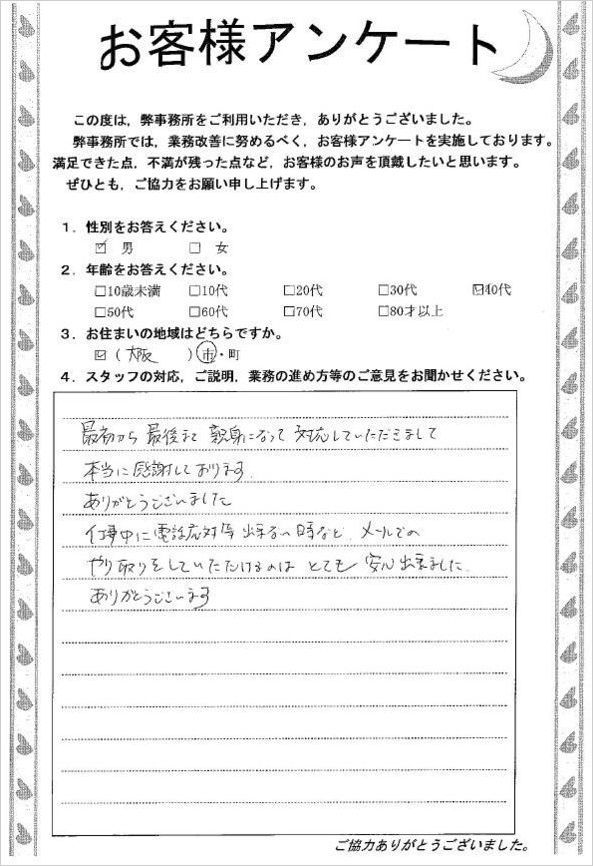 お客様アンケート
この度は，弊事務所をご利用いただき，ありがとうございました。
弊事務所では，業務改善に努めるべく，お客様アンケートを実施しております。
満足できた点，不満が残った点など，お客様のお声を頂戴したいと思います。
ぜひとも，ご協力をお願い申し上げます。
1．性別をお答えください。
☑ 男 □ 女
2．年齢をお答えください。
□10歳未満 □10代 □20代 □30代 ☑40代
□50代 □60代 □70代 □80才以上
3．お住まいの地域はどちらですか。
☑（大阪）市・町
4．スタッフの対応，ご説明，業務の進め方等のご意見をお聞かせください。
最初から最後まで親身になって対応していただきまして
本当に感謝しております。
ありがとうございました
仕事中に電話応対等出来ない時など、メールでの
やり取りをしていただけるのはとても安心出来ました。
ありがとうございます
ご協力ありがとうございました。